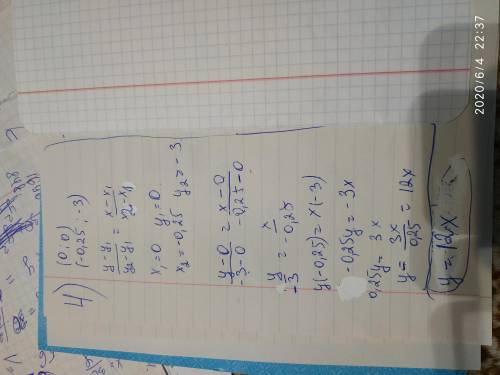 4) (0; 0)
(-0,25; -3)
y-y₁/y₂-y₁ = x-x₁/x₂-x₁
x₁=0 y₁=0
x₂=-0,25 y₂=-3
y-0/-3-0 = x-0/-0,25-0
y/-3 = x/-0,25
y(-0,25) = x(-3)
-0,25y = -3x
0,25y = 3x
y = 3x/0,25 = 12x
y = 12x
2020/6/4 22:37